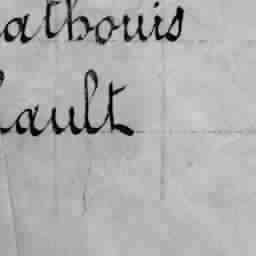 athouis
ault